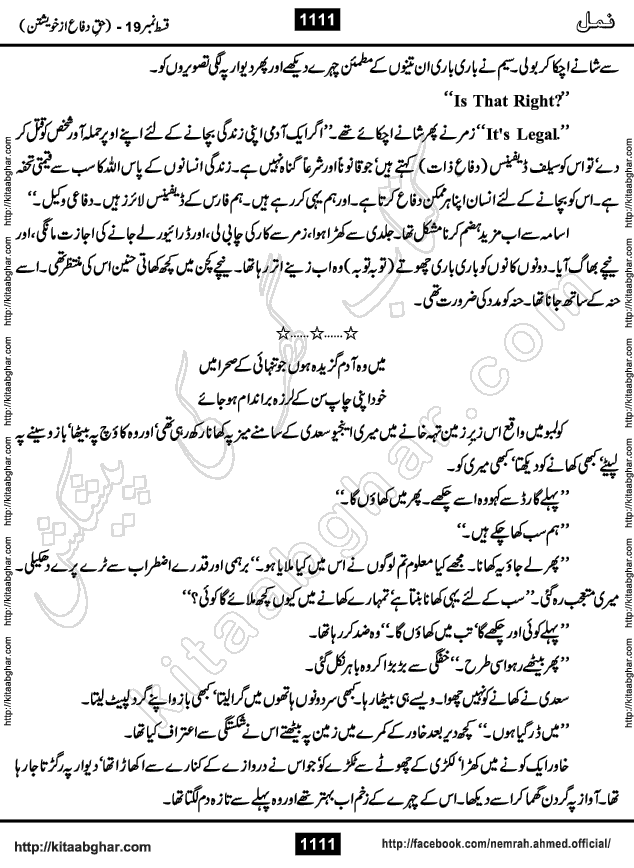 نمل
1111
قسط نمبر 19 - (حقِ دفاع از خویشتن)
سے شانے اچکا کر بولی۔ سیم نے باری باری ان تینوں کے مطمئن چہرے دیکھے اور پھر دیوار پہ لگی تصویروں کو۔
‘‘Is That Right?’’
‘‘It's Legal.’’ زمر نے پھر شانے اچکائے تھے۔ ’’اگر ایک آدمی اپنی زندگی بچانے کے لئے اپنے اوپر حملہ آور شخص کو قتل کر
دے‘ تو اس کو سیلف ڈیفینس (دفاعِ ذات) کہتے ہیں‘ جو قانوناً اور شرعاً گناہ نہیں ہے۔ زندگی انسانوں کے پاس اللہ کا سب سے قیمتی تحفہ
ہے۔ اس کو بچانے کے لئے انسان اپنا ہر ممکن دفاع کرتا ہے۔ اور ہم یہی کر رہے ہیں۔ ہم فارس کے ڈیفینس لائرز ہیں۔ دفاعی وکیل۔‘‘
اسامہ سے اب مزید ہضم کرنا مشکل تھا۔ جلدی سے کھڑا ہوا، زمر سے کار کی چابی لی، اور ڈرائیور لے جانے کی اجازت مانگی، اور
نیچے بھاگ آیا۔ دونوں کانوں کو باری باری چھوتے (توبہ توبہ) وہ اب زینے اتر رہا تھا۔ نیچے کچن میں کچھ کھاتی حنین اس کی منتظر تھی۔ اسے
حنہ کے ساتھ جانا تھا۔ حنہ کو مدد کی ضرورت تھی۔
☆......☆......☆
میں وہ آدم گزیدہ ہوں جو تنہائی کے صحرا میں
خود اپنی چاپ سن کے لرزہ براندام ہو جائے
کولمبو میں واقع اس زیرِ زمین تہہ خانے میں میری اینجیو سعدی کے سامنے میز پہ کھانا رکھ رہی تھی‘ اور وہ کاؤچ پہ بیٹھا‘ بازو سینے پہ
لپیٹے‘ کبھی کھانے کو دیکھتا‘ کبھی میری کو۔
’’پہلے گارڈ سے کہو وہ اسے چکھے۔ پھر میں کھاؤں گا۔‘‘
’’ہم سب کھا چکے ہیں۔‘‘
’’پھر لے جاؤ یہ کھانا۔ مجھے کیا معلوم تم لوگوں نے اس میں کیا ملایا ہو۔‘‘ برہمی اور قدرے اضطراب سے ٹرے پرے دھکیلی۔
میری متعجب رہ گئی۔ ’’سب کے لئے یہی کھانا بنتا ہے‘ تمہارے کھانے میں کیوں کچھ ملائے گا کوئی؟‘‘
’’پہلے کوئی اور چکھے گا‘ تب میں کھاؤں گا۔‘‘ وہ ضد کر رہا تھا۔
’’پھر بیٹھے رہو اسی طرح۔‘‘ خفگی سے بڑبڑا کر وہ باہر نکل گئی۔
سعدی نے کھانے کو نہیں چھوا۔ ویسے ہی بیٹھا رہا۔ کبھی سر دونوں ہاتھوں میں گرا لیتا‘ کبھی بازو اپنے گرد لپیٹ لیتا۔
’’میں ڈر گیا ہوں۔‘‘ کچھ دیر بعد خاور کے کمرے میں زمین پہ بیٹھتے اس نے شکستگی سے اعتراف کیا تھا۔
خاور ایک کونے میں کھڑا‘ لکڑی کے چھوٹے سے ٹکڑے کو‘ جو اس نے دروازے کے کنارے سے اکھاڑا تھا‘ دیوار پہ رگڑتا جا رہا
تھا۔ آواز پہ گردن گھما کر اسے دیکھا۔ اس کے چہرے کے زخم اب بہتر تھے اور وہ پہلے سے تازہ دم لگتا تھا۔
کتاب گھر کی پیشکش
kitaabghar.com
http://kitaabghar.com http://kitaabghar.com http://kitaabghar.com http://kitaabghar.com http://kitaabghar.com http://kitaabghar.com
http://kitaabghar.com http://kitaabghar.com http://kitaabghar.com http://kitaabghar.com http://kitaabghar.com http://kitaabghar.com
http://kitaabghar.com
1111
http://facebook.com/nemrah.ahmed.official/